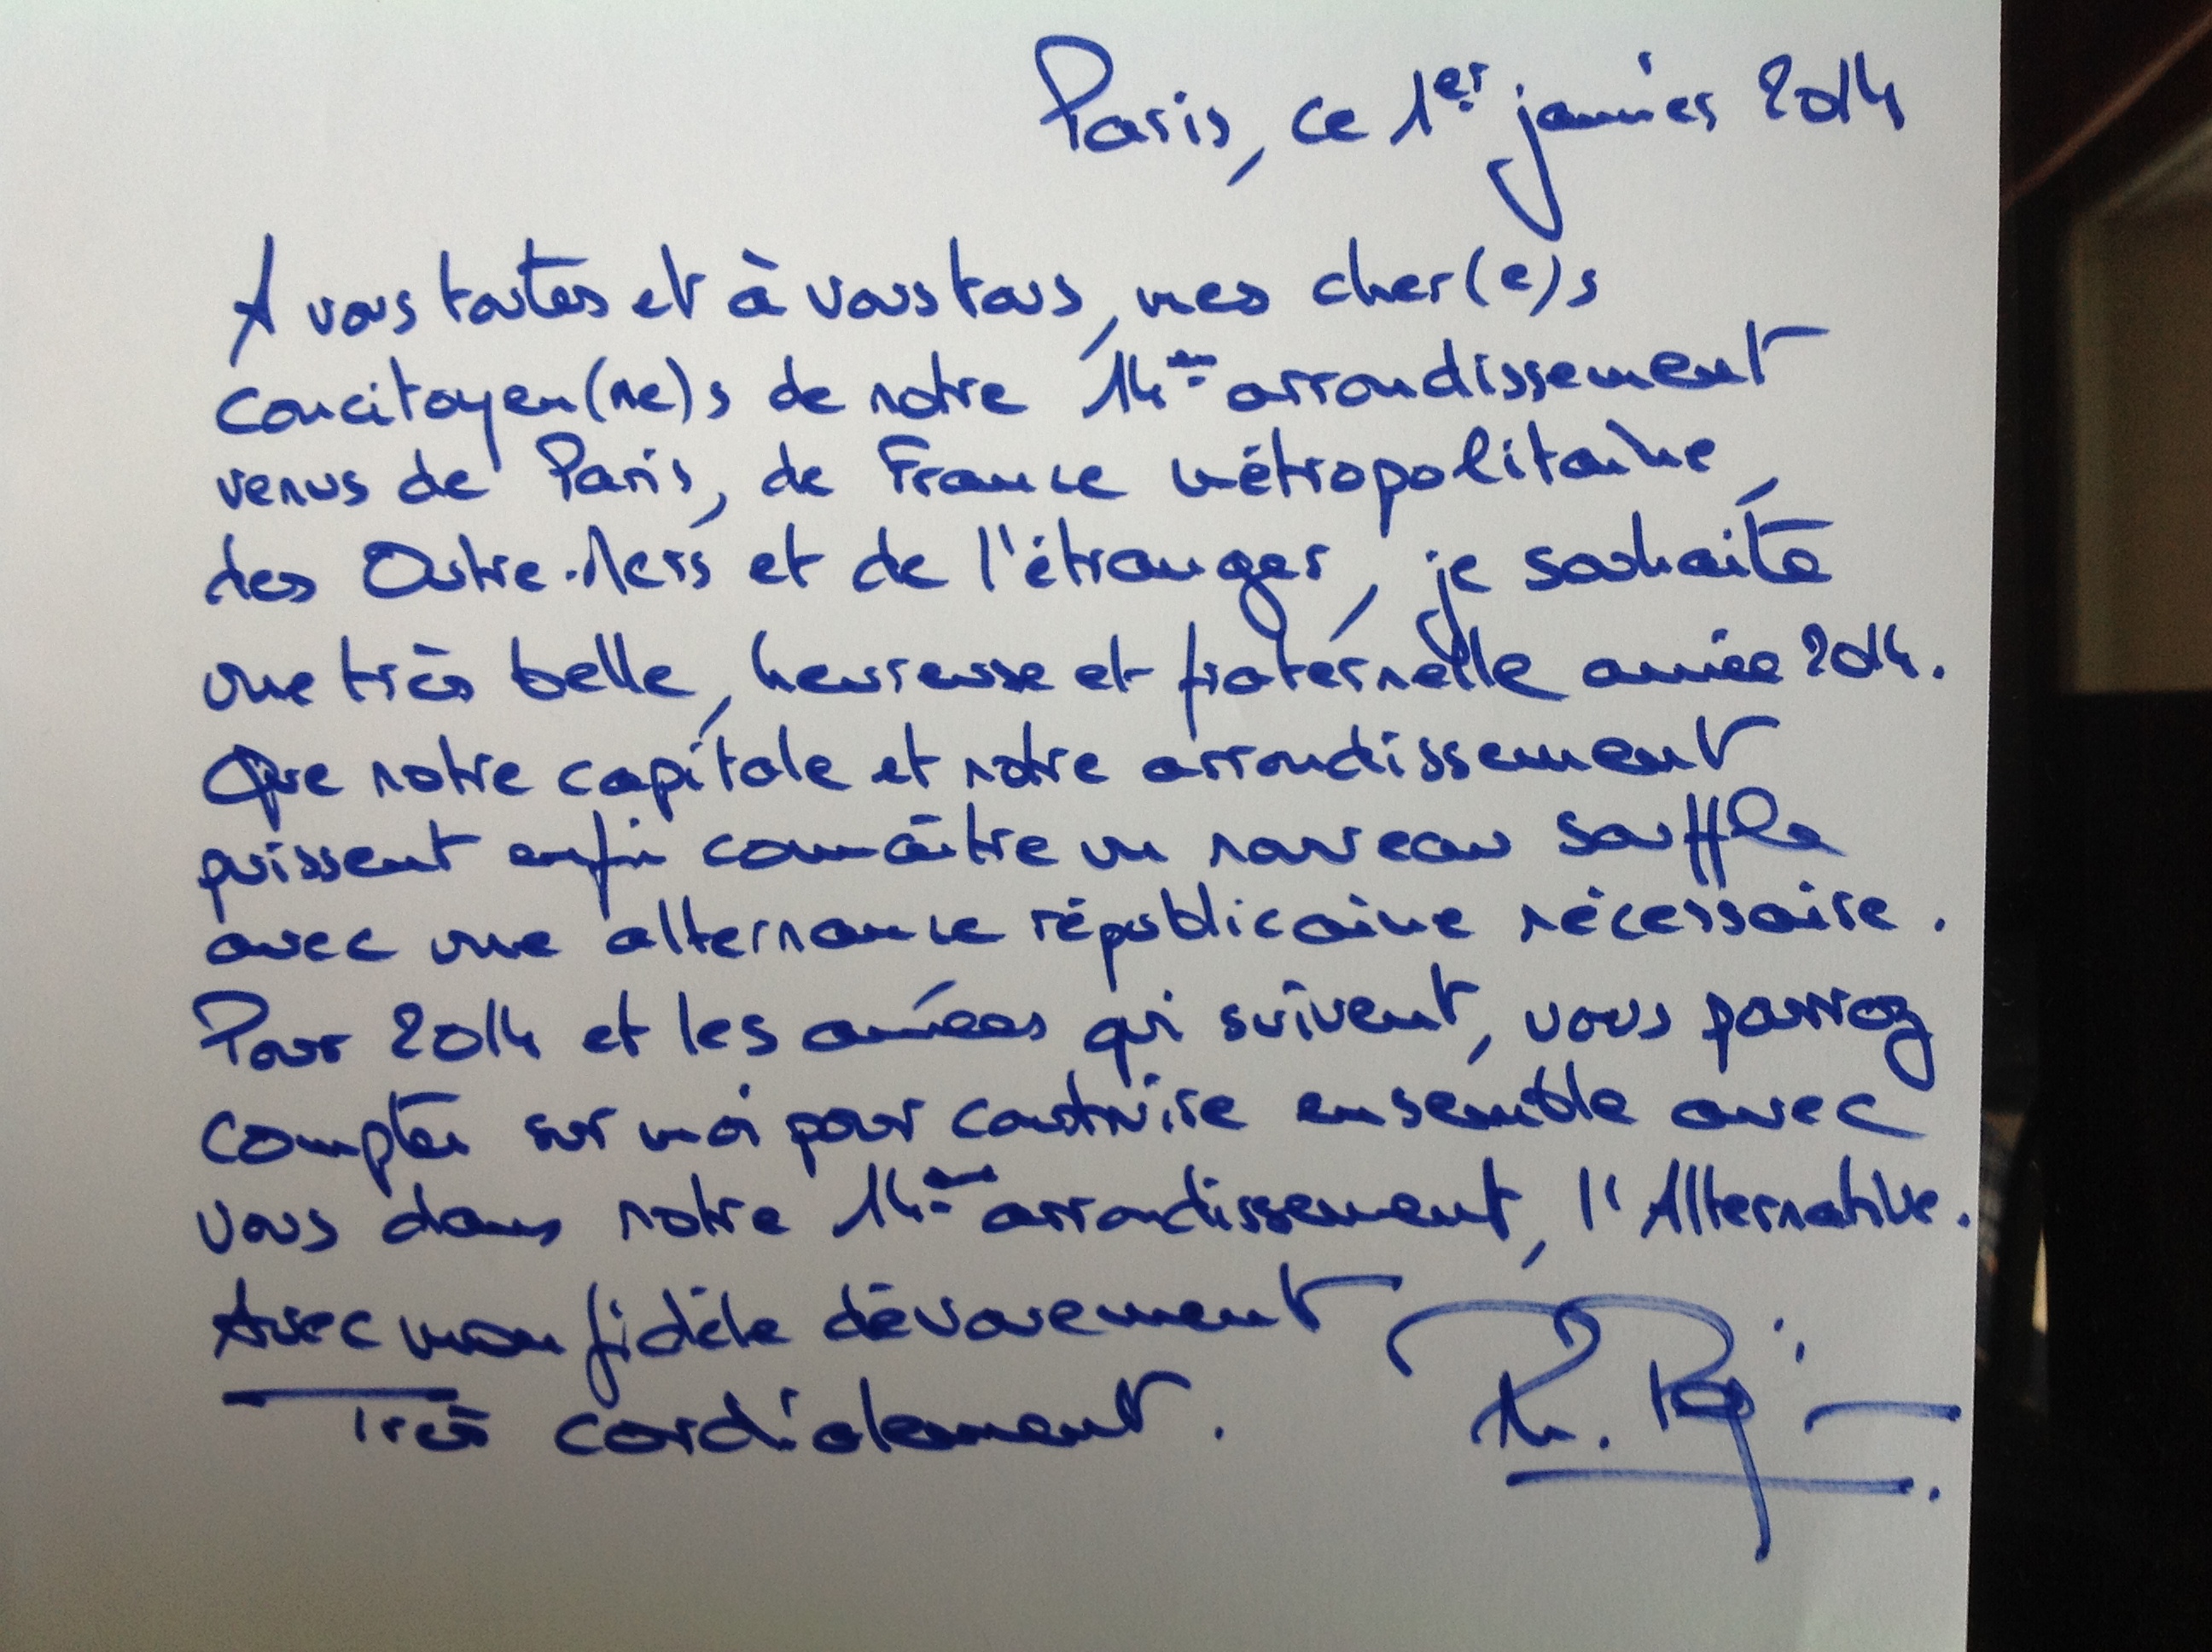 Paris, ce 1er janvier 2014
A vous toutes et à vous tous, mes cher(e)s
concitoyen(ne)s de notre 14ème arrondissement
venus de Paris, de France métropolitaine,
des Outre-Mers et de l'étranger, je souhaite
une très belle, heureuse et fraternelle année 2014.
Que notre capitale et notre arrondissement
puissent enfin connaître un nouveau souffle
avec une alternance républicaine nécessaire.
Pour 2014 et les années qui suivent, vous pourrez
compter sur moi pour construire ensemble avec
vous dans notre 14ème arrondissement, l'Alternative.
Avec mon fidèle dévouement
Très cordialement.